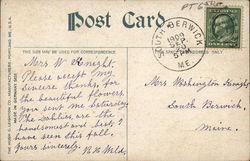 Post Card
SOUTH BERWICK
1909
5 PM
ME.
THIS SIDE MAY BE USED FOR CORRESPONDENCE.
Mrs W Knight.
Please accept my
sincere thanks, for
the beautiful flowers
you sent me Saturday
The dahlias are the
handsomest and best I
have seen this fall.
Yours sincerely,
Mrs Washington Knight
South Berwick,
Maine.
THE HUGH C. LEIGHTON CO., MANUFACTURERS, PORTLAND, ME., U.S.A.